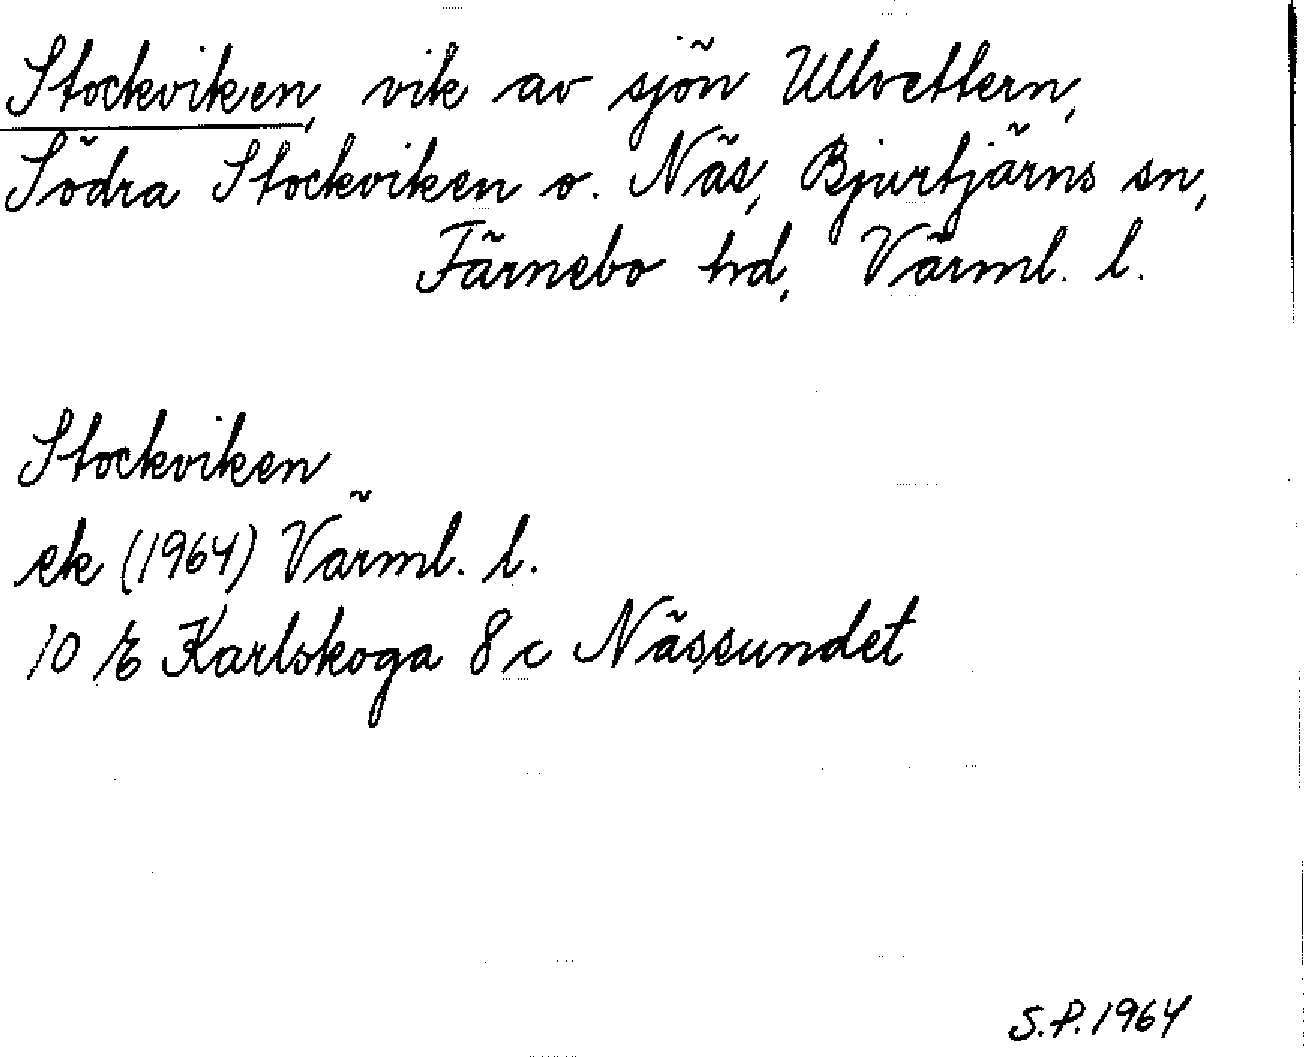 Stockviken, vik av sjön Ullvettern,
Södra Stockviken o. Näs, Bjurtjärns sn,
Färnebo hd, Värml. l.
Stockviken
ek (1964) Värml. l.
10 E Karlskoga 8 c Nässundet
S.P. 1964